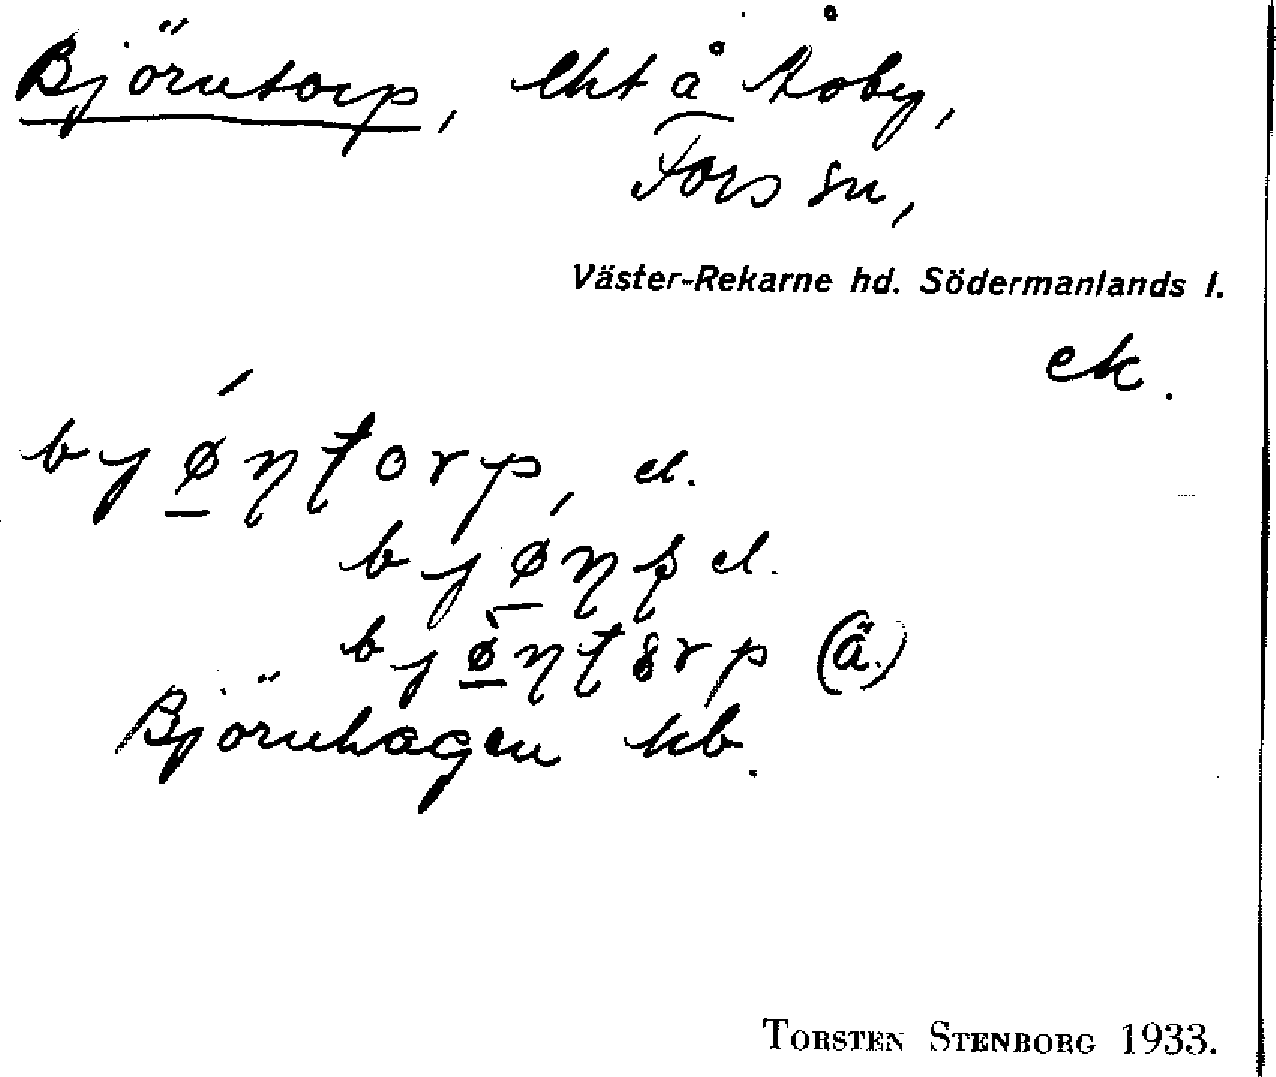 Björntorp, lht å Åby,
Fors sn,
Väster-Rekarne hd. Södermanlands l.
ek.
bjøṇʈorp, el.
bjøṇʂ el.
bjøṇʈɞrp (ä.)
Björnhagen kb.
TORSTEN STENBORG 1933.